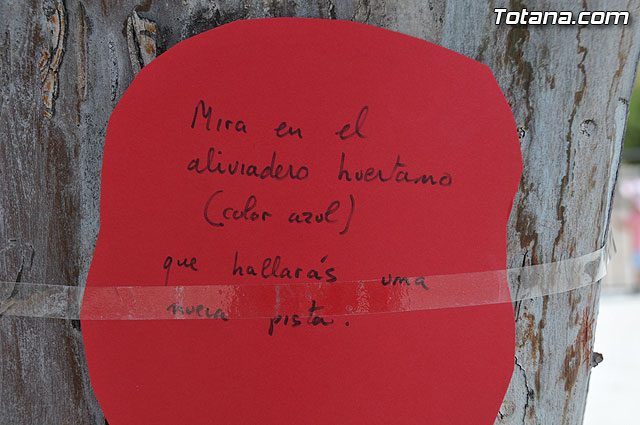 Totana.com
Mira en el
aliviadero huertano
(color azul)
que hallarás una
nueva pista.